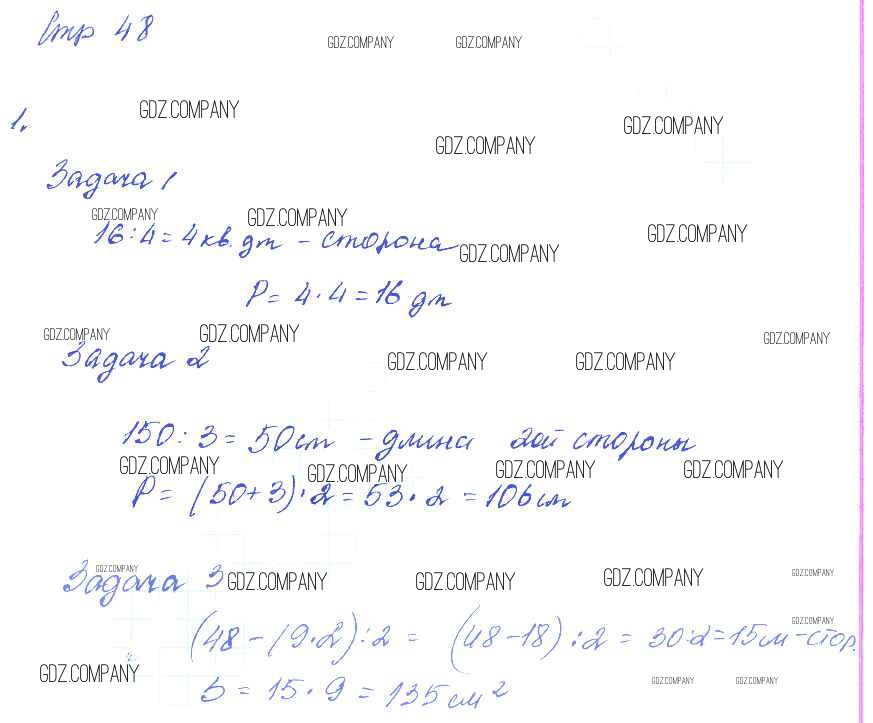 Стр 48
GDZ.COMPANY GDZ.COMPANY
GDZ.COMPANY
1.
GDZ.COMPANY GDZ.COMPANY
Задача 1
GDZ.COMPANY GDZ.COMPANY GDZ.COMPANY
16:4=4 кв. дм - сторона
GDZ.COMPANY
P= 4·4=16 дм
GDZ.COMPANY GDZ.COMPANY GDZ.COMPANY
Задача 2
GDZ.COMPANY GDZ.COMPANY
150:3=50см - длина 2ой стороны
GDZ.COMPANY GDZ.COMPANY GDZ.COMPANY GDZ.COMPANY
P= (50+3)·2=53·2=106см
GDZ.COMPANY
Задача 3
GDZ.COMPANY GDZ.COMPANY GDZ.COMPANY GDZ.COMPANY
GDZ.COMPANY
(48-(9·2):2= (48-18):2=30:2=15см-стор.
GDZ.COMPANY GDZ.COMPANY GDZ.COMPANY
S=15·9=135см²